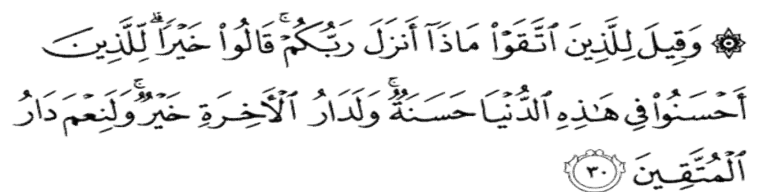 ۞ وَقِيلَ لِلَّذِينَ ٱتَّقَوْا۟ مَاذَآ أَنزَلَ رَبُّكُمْ ۚ قَالُوا۟ خَيْرًا ۗ لِّلَّذِينَ
أَحْسَنُوا۟ فِى هَـٰذِهِ ٱلدُّنْيَا حَسَنَةٌ ۚ وَلَدَارُ ٱلْـَٔاخِرَةِ خَيْرٌ ۚ وَلَنِعْمَ دَارُ
ٱلْمُتَّقِينَ ٣٠